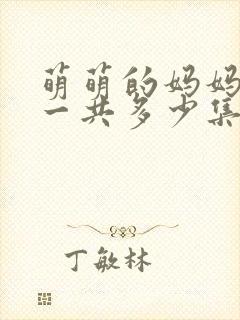 萌萌的妈妈
一共多少集
丁敏林